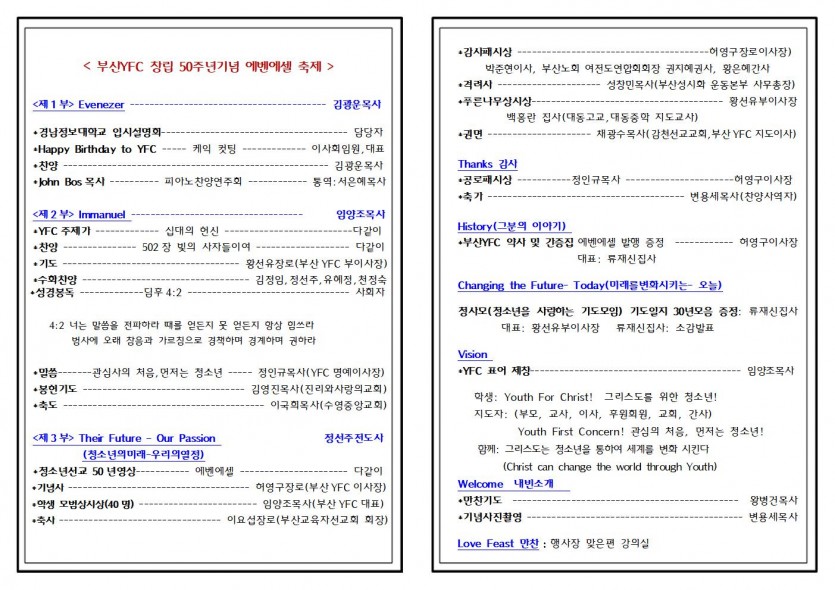 < 부산YFC 창립 50주년기념 에벤에셀 축제 >
<제 1 부> Evenezer ---------------------------------- 김광운목사
*경남정보대학교 입시설명회---------------------------------- 담당자
*Happy Birthday to YFC ----- 케익 컷팅 ------------- 이사회임원,대표
*찬양 ------------------------------------------------ 김광운목사
*John Bos 목사 ---------- 피아노찬양연주회 ------------ 통역:서은혜목사
<제 2 부> Immanuel -------------------------------- 임양조목사
*YFC 주제가 ------------ 십대의 헌신 ------------------------다같이
*찬양 -------------- 502 장 빛의 사자들이여 ------------------ 다같이
*기도 ---------------------------------- 황선유장로(부산 YFC 부이사장)
*수화찬양 ------------------------------- 김정임,정선주,유혜정,천정숙
*성경봉독 ------------딤후 4:2 -------------------------------- 사회자
4:2 너는 말씀을 전파하라 때를 얻든지 못 얻든지 항상 힘쓰라
범사에 오래 참음과 가르침으로 경책하며 경계하며 권하라
*말씀-------관심사의 처음,먼저는 청소년 ----- 정인규목사(YFC 명예이사장)
*봉헌기도 ------------------------------- 김영진목사(진리와사랑의교회)
*축도 -------------------------------------- 이국희목사(수영중앙교회)
<제 3 부> Their Future – Our Passion 정선주전도사
(청소년의미래-우리의열정)
*청소년선교 50 년영상---------- 에벤에셀 ----------------------- 다같이
*기념사 ------------------------------------ 허영구장로(부산YFC 이사장)
*학생 모범상시상(40 명) ---------------------- 임양조목사(부산 YFC 대표)
*축사 ------------------------------- 이요섭장로(부산교육자선교회 회장)
*감사패시상 -------------------------------------허영구장로이사장)
박준현이사, 부산노회 여전도연합회회장 권지혜권사, 황은혜간사
*격려사 ------------------- 성창민목사(부산성시화 운동본부 사무총장)
*푸른나무상시상------------------------------------- 황선유부이사장
백홍란 집사(대동고교,대동중학 지도교사)
*권면 --------------------- 채광수목사(감천선교교회,부산 YFC 지도이사)
Thanks 감사
*공로패시상 -----------정인규목사 ----------------------허영구이사장
*축가 -------------------------------------- 변용세목사(찬양사역자)
History(그분의 이야기)
*부산YFC 약사 및 간증집 에벤에셀 발행 증정 ----------- 허영구이사장
대표: 류재신집사
Changing the Future- Today(미래를변화시키는- 오늘)
청사모(청소년을 사랑하는 기도모임) 기도일지 30년모음 증정: 류재신집사
대표: 황선유부이사장 류재신집사: 소감발표
Vision
*YFC 표어 제창---------------------------------------- 임양조목사
학생: Youth For Christ! 그리스도를 위한 청소년!
지도자: (부모, 교사, 이사, 후원회원, 교회, 간사)
Youth First Concern! 관심의 처음, 먼저는 청소년!
함께: 그리스도는 청소년을 통하여 세계를 변화 시킨다
(Christ can change the world through Youth)
Welcome 내빈소개
*만찬기도 -------------------------------------------- 왕병건목사
*기념사진촬영 ---------------------------------------- 변용세목사
Love Feast 만찬 : 행사장 맞은편 강의실